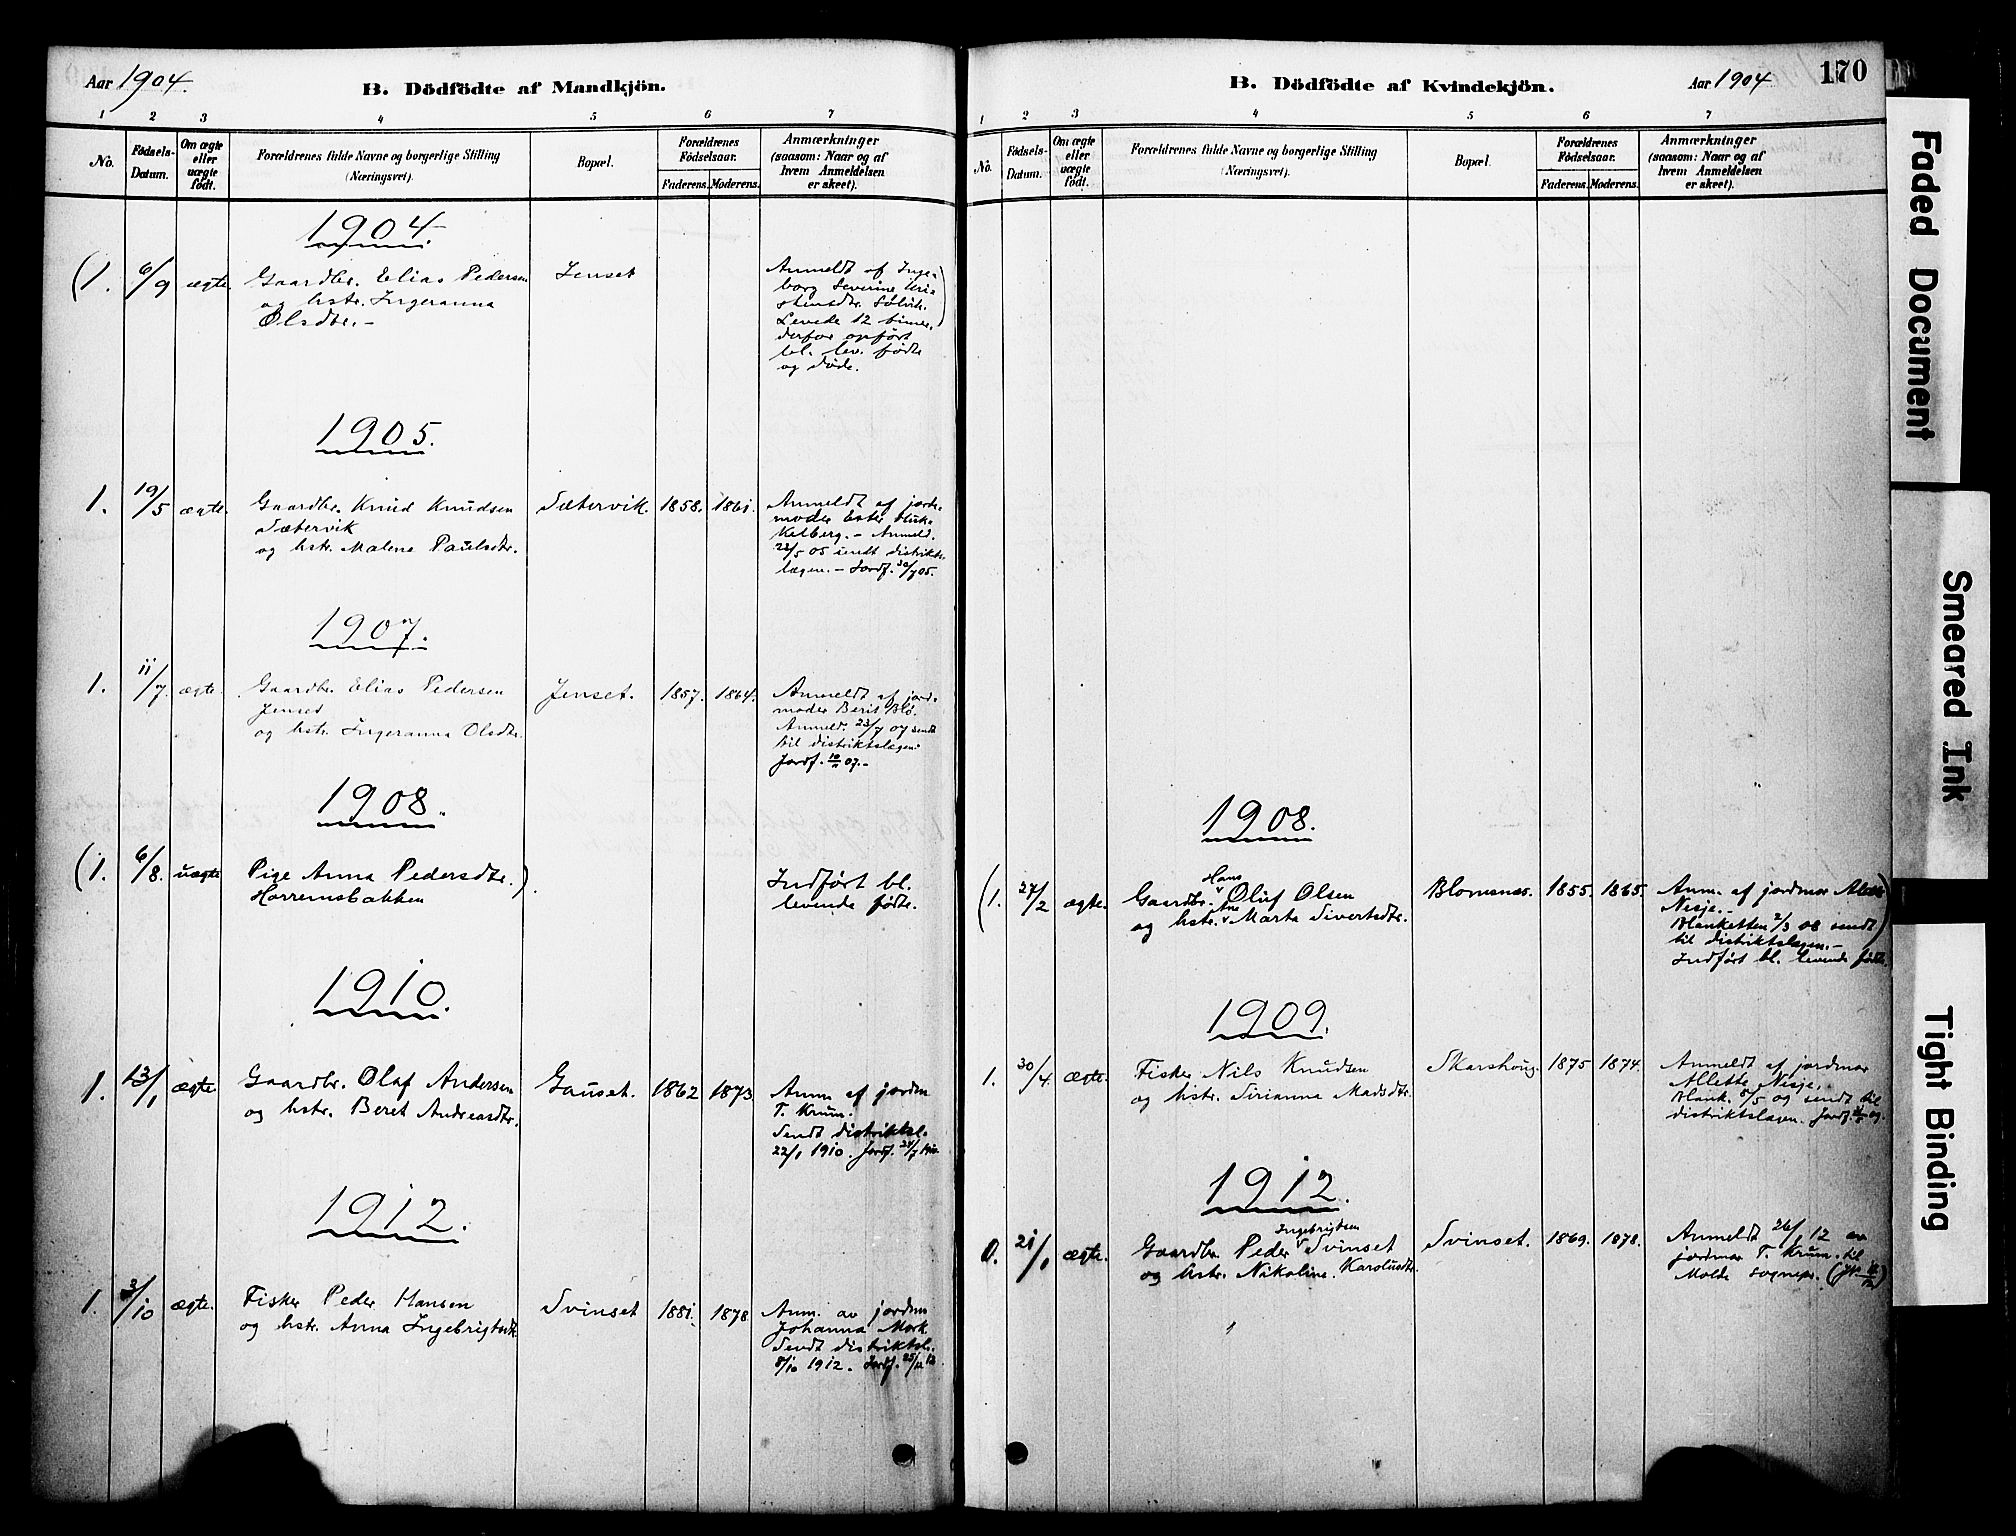 Aar 1904.
B. Dödfödte af Mandkjön.
1 2 3 4 5 6 7
No.
Födsels-
Datum.
Om ægte
eller
uægte
födt.
Forældrenes fulde Navne og borgerlige Stilling
(Næringsvei).
Bopæl.
Forældrenes
Födselsaar.
Faderens. Moderens.
Anmærkninger
(saasom: Naar og af
hvem Anmeldelsen
er skeet).
1904
(1. 6/9 ægte. Gaardbr. Elias Pedersen
og hstr. Ingeranna
Olsdtr.-
Jenset
Anmeldt af Inge-
borg Severine Kri-
stensdtr. Sølvik.
Levede 12 timer,
derfor opført
bl. lev. fødte
og døde.
1905.
1. 19/5 ægte. Gaardbr. Knud Knudsen
Sætervik
og hstr. Malene Paulsdtr.
Sætervik. 1858. 1861.
Anmeldt af jorde-
moder Ester
- Anmeld.
22/5 05 sendt distrikts-
lægen. - Jordf. 30/7 05.
1907.
1. 11/7. ægte. Gaardbr. Elias Pedersen
Jenset
og hstr. Ingeranna Olsdtr.
Jenset. 1857. 1864.
Anmeldt af jord-
moder Berit Blø.
Anmeld. 23/7 07 sendt
til distriktslægen.
Jordf. 07.-
1908.
(1. 6/8. uægte Pige Anna Pedersdtr.).
Horremsbakken
Indført bl.
levende fødte.
1910.
1. 13/1 ægte. Gaardbr. Olaf Andersen
og hstr. Beret Andreasdtr.
Gauset. 1862 1873
Anm. af jordm
T. Krum.
Sendt distriktsl.
22/1 1910. Jordf. 24/7 1910.
1912.
1. 3/10 ægte. Fisker Peder Hansen
og hstr. Anna Ingebrigtsdt.
Svinset 1881. 1878
Anm. av jordm
Johanna Mork
Sendt distriktsl.
8/10 1912. Jordf. 25/11 12.
B. Dödfödte af Kvindekjön.
Aar 1904 170
1 2 3 4 5 6 7
No.
Födsels-
Datum.
Om ægte
eller
uægte
födt.
Forældrenes fulde Navne og borgerlige Stilling
(Næringsvei).
Bopæl.
Forældrenes
Födselsaar.
Faderens. Moderens.
Anmærkninger
(saasom: Naar og af
hvem Anmeldelsen
er skeet).
1908.
(1. 27/2 ægte. Gaardbr. Hans Oluf Olsen
og hstr. Ane Marta Sivertsdtr.
Blomsnes. 1855. 1865.
Anm. af jordmor Alette
Nesje.-
Blanketten 2/3 08 sendt)
til distriktslægen.-
Indført bl. levende fødte.
1909.
1. 30/4. ægte. Fisker Nils Knudsen
og hstr. Sirianna Madsdtr.
Skarshoug. 1875 1874.
Anmeldt af jordmor
Allette Nesje.
Blank. 8/5 09 sendt til
distriktslægen. Jordf. 09.
1912.
0. 21/1 ægte. Gaardbr. Peder Ingebrigtsen Svinset
og hstr. Nikoline Karolusdtr.
Svinset. 1869. 1878.
Anmeldt 26/1 12 av
jordmor T. Krum til
Molde sognepr.
Faded Document
Smeared Ink
Tight Binding